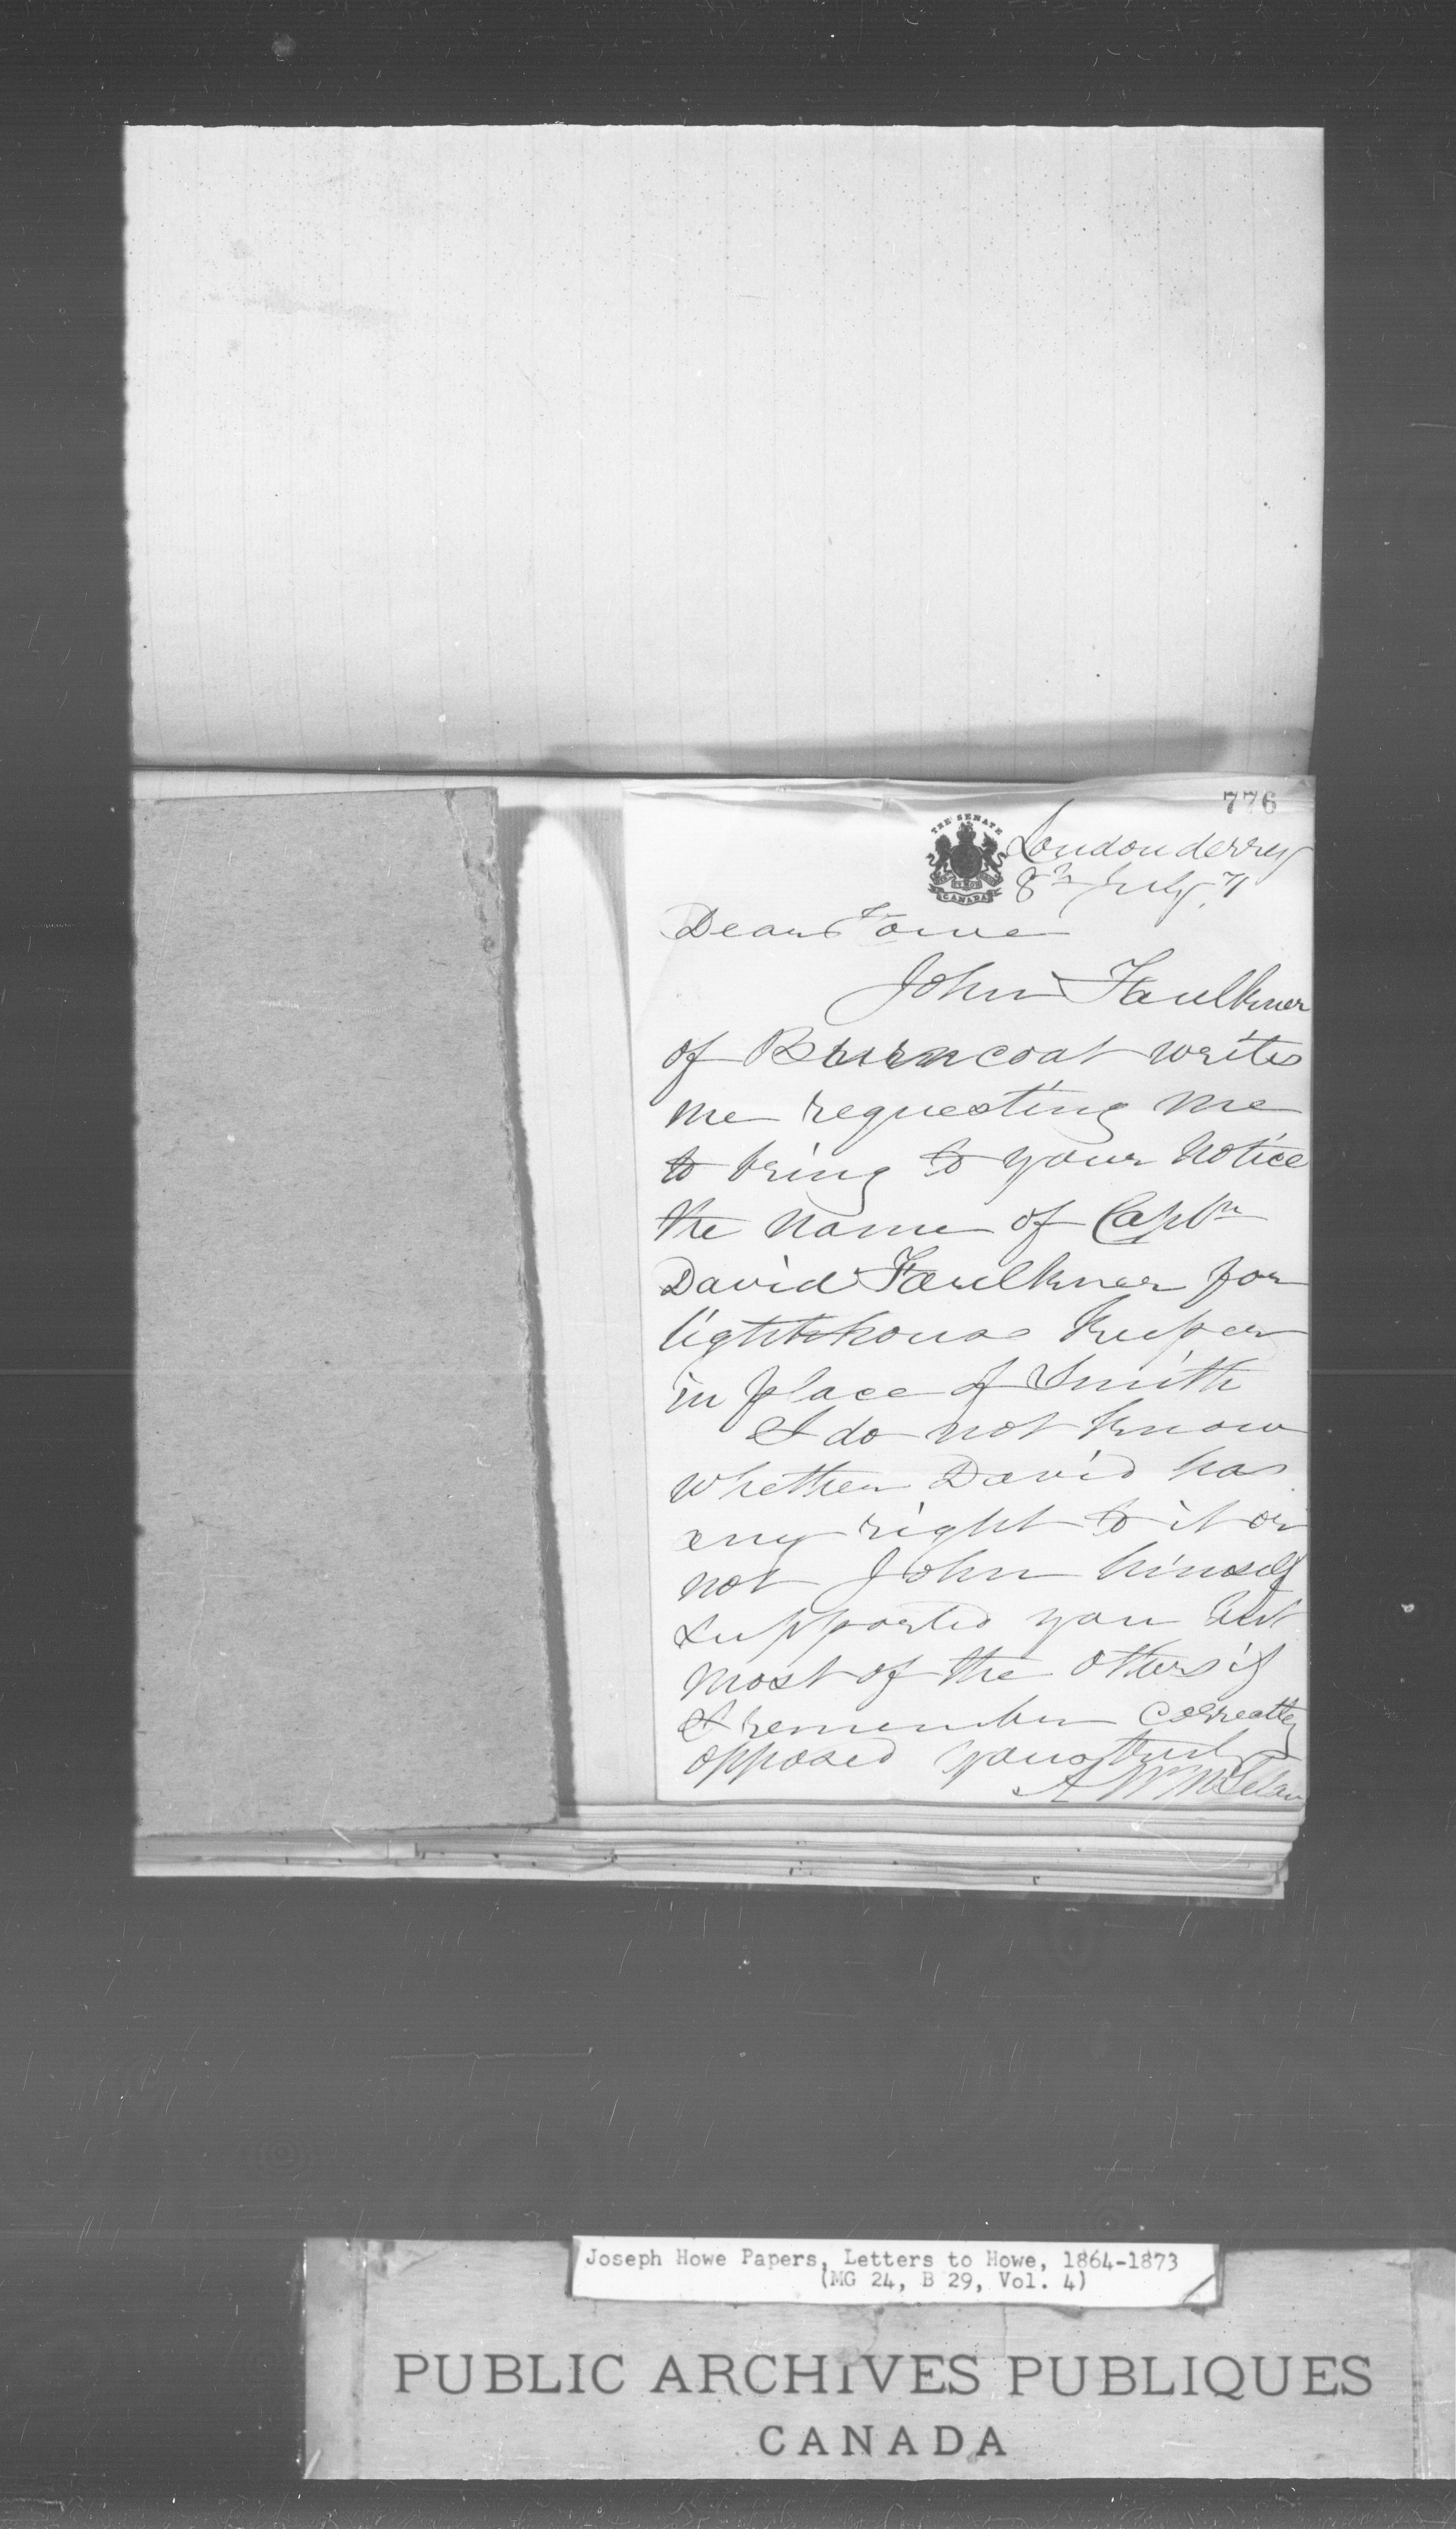 776
THE SENATE
CANADA
Londonderry
8th July 71
Dear Howe
John Faulkner
of Burncoat writes
me requesting me
to bring to your notice
the name of Captn
David Faulkner for
lighthouse keeper
in place of Smith
I do not know
whether David has
any right to it or
not John himself
supported you but
most of the others if
I remember correctly
opposed yours truly
A W McLelan
Joseph Howe Papers, Letters to Howe, 1864-1873
(MG 24, B 29, Vol. 4)
PUBLIC ARCHIVES PUBLIQUES
CANADA